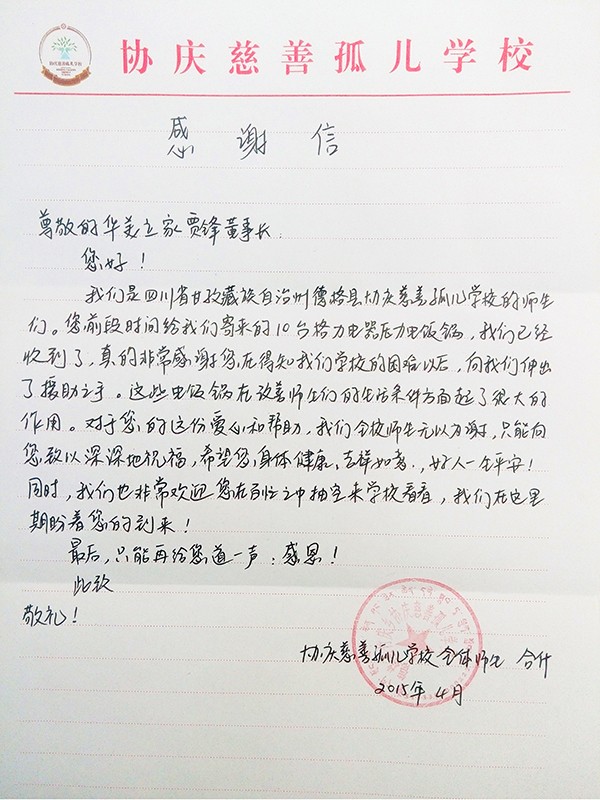 协庆慈善孤儿学校
协庆慈善孤儿学校
感谢信
尊敬的华美立家贾锋董事长:
您好!
我们是四川省甘孜藏族自治州德格县协庆慈善孤儿学校的师生
们。您前段时间给我们寄来的10台格力电器压力电饭锅,我们已经
收到了,真的非常感谢您在得知我们学校的困难以后,向我们伸出
了援助之手。这些电饭锅在改善师生们的生活条件方面起了很大的
作用。对于您的这份爱心和帮助,我们全校师生无以为谢,只能向
您致以深深地祝福,希望您身体健康,吉祥如意,好人一生平安!
同时,我们也非常欢迎您在百忙之中抽空来学校看看,我们在这里
期盼着您的到来!
最后,只能再给您道一声:感恩!
此致
敬礼!
协庆慈善孤儿学校全体师生 合什
2015年4月